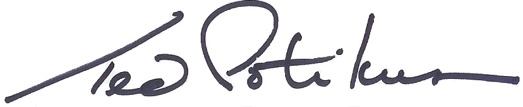 Ted Potikus